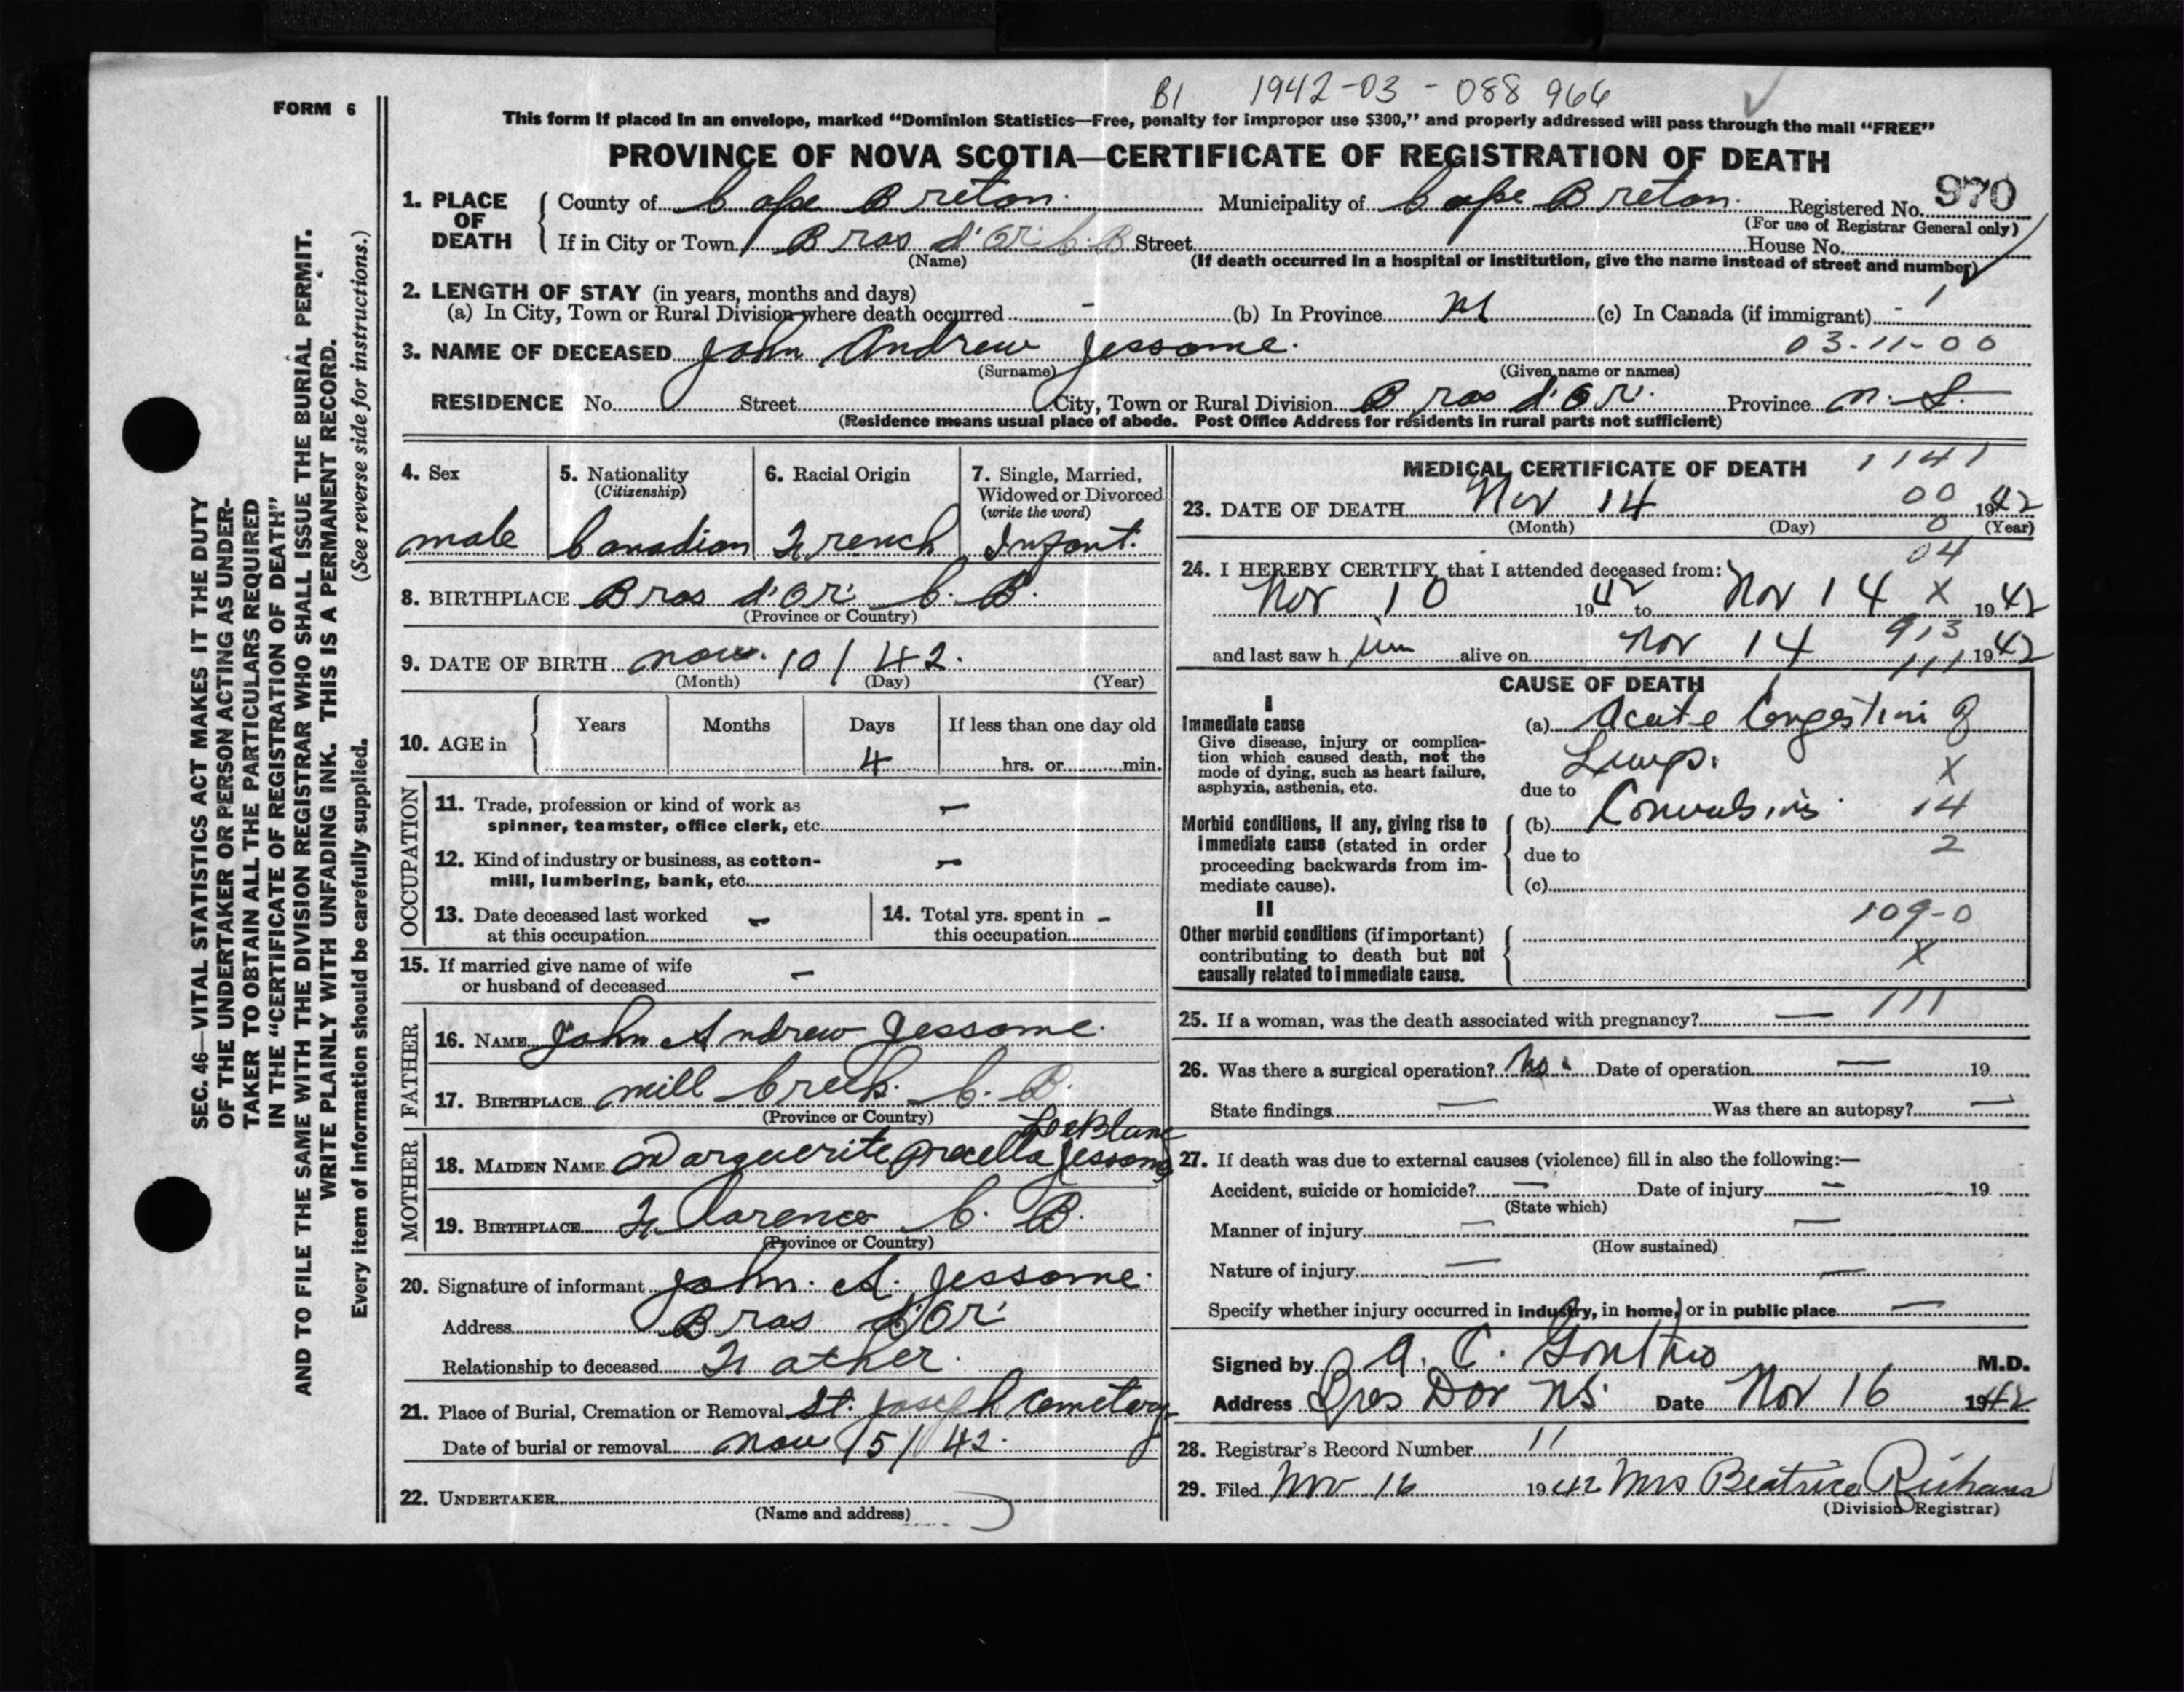 B1 1942-03-088 966
FORM 6
This form if placed in an envelope, marked "Dominion Statistics—Free, penalty for improper use $300," and properly addressed will pass through the mail "FREE"
PROVINCE OF NOVA SCOTIA—CERTIFICATE OF REGISTRATION OF DEATH
SEC. 46—VITAL STATISTICS ACT MAKES IT THE DUTY
OF THE UNDERTAKER OR PERSON ACTING AS UNDER-
TAKER TO OBTAIN ALL THE PARTICULARS REQUIRED
IN THE "CERTIFICATE OF REGISTRATION OF DEATH"
AND TO FILE THE SAME WITH THE DIVISION REGISTRAR WHO SHALL ISSUE THE BURIAL PERMIT.
WRITE PLAINLY WITH UNFADING INK. THIS IS A PERMANENT RECORD.
Every item of information should be carefully supplied. (See reverse side for instructions.)
1. PLACE OF DEATH
County of Cape Breton. Municipality of Cape Breton. Registered No. 970
(For use of Registrar General only)
If in City or Town Bras d'Or C.B Street House No.
(Name) (If death occurred in a hospital or institution, give the name instead of street and number)
2. LENGTH OF STAY (in years, months and days)
(a) In City, Town or Rural Division where death occurred - (b) In Province (c) In Canada (if immigrant) - 1
3. NAME OF DECEASED John Andrew Jessome. 03-11-00
(Surname) (Given name or names)
RESIDENCE No. Street City, Town or Rural Division Bras d'Or. Province N. S.
(Residence means usual place of abode. Post Office Address for residents in rural parts not sufficient)
4. Sex
male
5. Nationality
(Citizenship)
Canadian
6. Racial Origin
French
7. Single, Married,
Widowed or Divorced
(write the word)
Infant.
8. BIRTHPLACE Bras d'Or C. B.
(Province or Country)
9. DATE OF BIRTH Nov. 10 / 42.
(Month) (Day) (Year)
10. AGE in
Years Months Days If less than one day old
4 hrs. or min.
OCCUPATION
11. Trade, profession or kind of work as
spinner, teamster, office clerk, etc. -
12. Kind of industry or business, as cotton-
mill, lumbering, bank, etc. -
13. Date deceased last worked
at this occupation -
14. Total yrs. spent in
this occupation -
15. If married give name of wife
or husband of deceased -
FATHER
16. NAME John Andrew Jessome.
17. BIRTHPLACE Mill Creek. C. B.
(Province or Country)
MOTHER
LeBlanc
18. MAIDEN NAME Marguerite Jessome
19. BIRTHPLACE Florence C. B.
(Province or Country)
20. Signature of informant John. A. Jessome.
Address Bras d'Or
Relationship to deceased Father.
21. Place of Burial, Cremation or Removal St. Joseph Cemetery
Date of burial or removal Nov 15/ 42.
22. UNDERTAKER
(Name and address)
MEDICAL CERTIFICATE OF DEATH 1141
23. DATE OF DEATH Nov 14 00 1942
(Month) (Day) 0 (Year)
04
24. I HEREBY CERTIFY that I attended deceased from:
Nov 10 1942 to Nov 14 X 1942
913
and last saw him alive on Nov 14 1942
111
CAUSE OF DEATH
I
Immediate cause
Give disease, injury or complica-
tion which caused death, not the
mode of dying, such as heart failure,
asphyxia, asthenia, etc.
(a) Acute Congestion of
Lungs. X
due to
Morbid conditions, if any, giving rise to
immediate cause (stated in order
proceeding backwards from im-
mediate cause).
(b) Convulsions 14
due to 2
(c)
II
Other morbid conditions (if important)
contributing to death but not
causally related to immediate cause.
109-0
X
111
25. If a woman, was the death associated with pregnancy? —
26. Was there a surgical operation? No. Date of operation — 19
State findings — Was there an autopsy? —
27. If death was due to external causes (violence) fill in also the following:—
Accident, suicide or homicide? — Date of injury — 19
(State which)
Manner of injury — —
(How sustained)
Nature of injury — —
Specify whether injury occurred in industry, in home, or in public place —
Signed by A. C. M.D.
Address Bras Dor NS. Date Nov 16 1942
28. Registrar's Record Number 11
29. Filed Nov 16 1942 Mrs Beatrice
(Division Registrar)